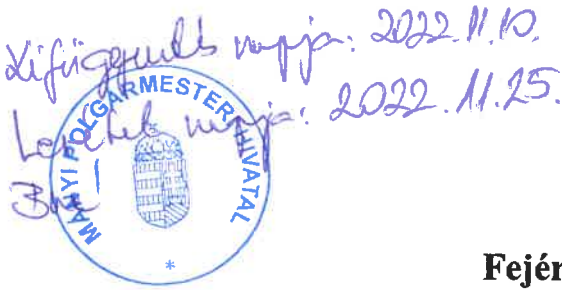 Kifüggesztés napja: 2022.11.10.
Levétel napja: 2022.11.25.
MÁNYI POLGÁRMESTERI HIVATAL
*
Fejér